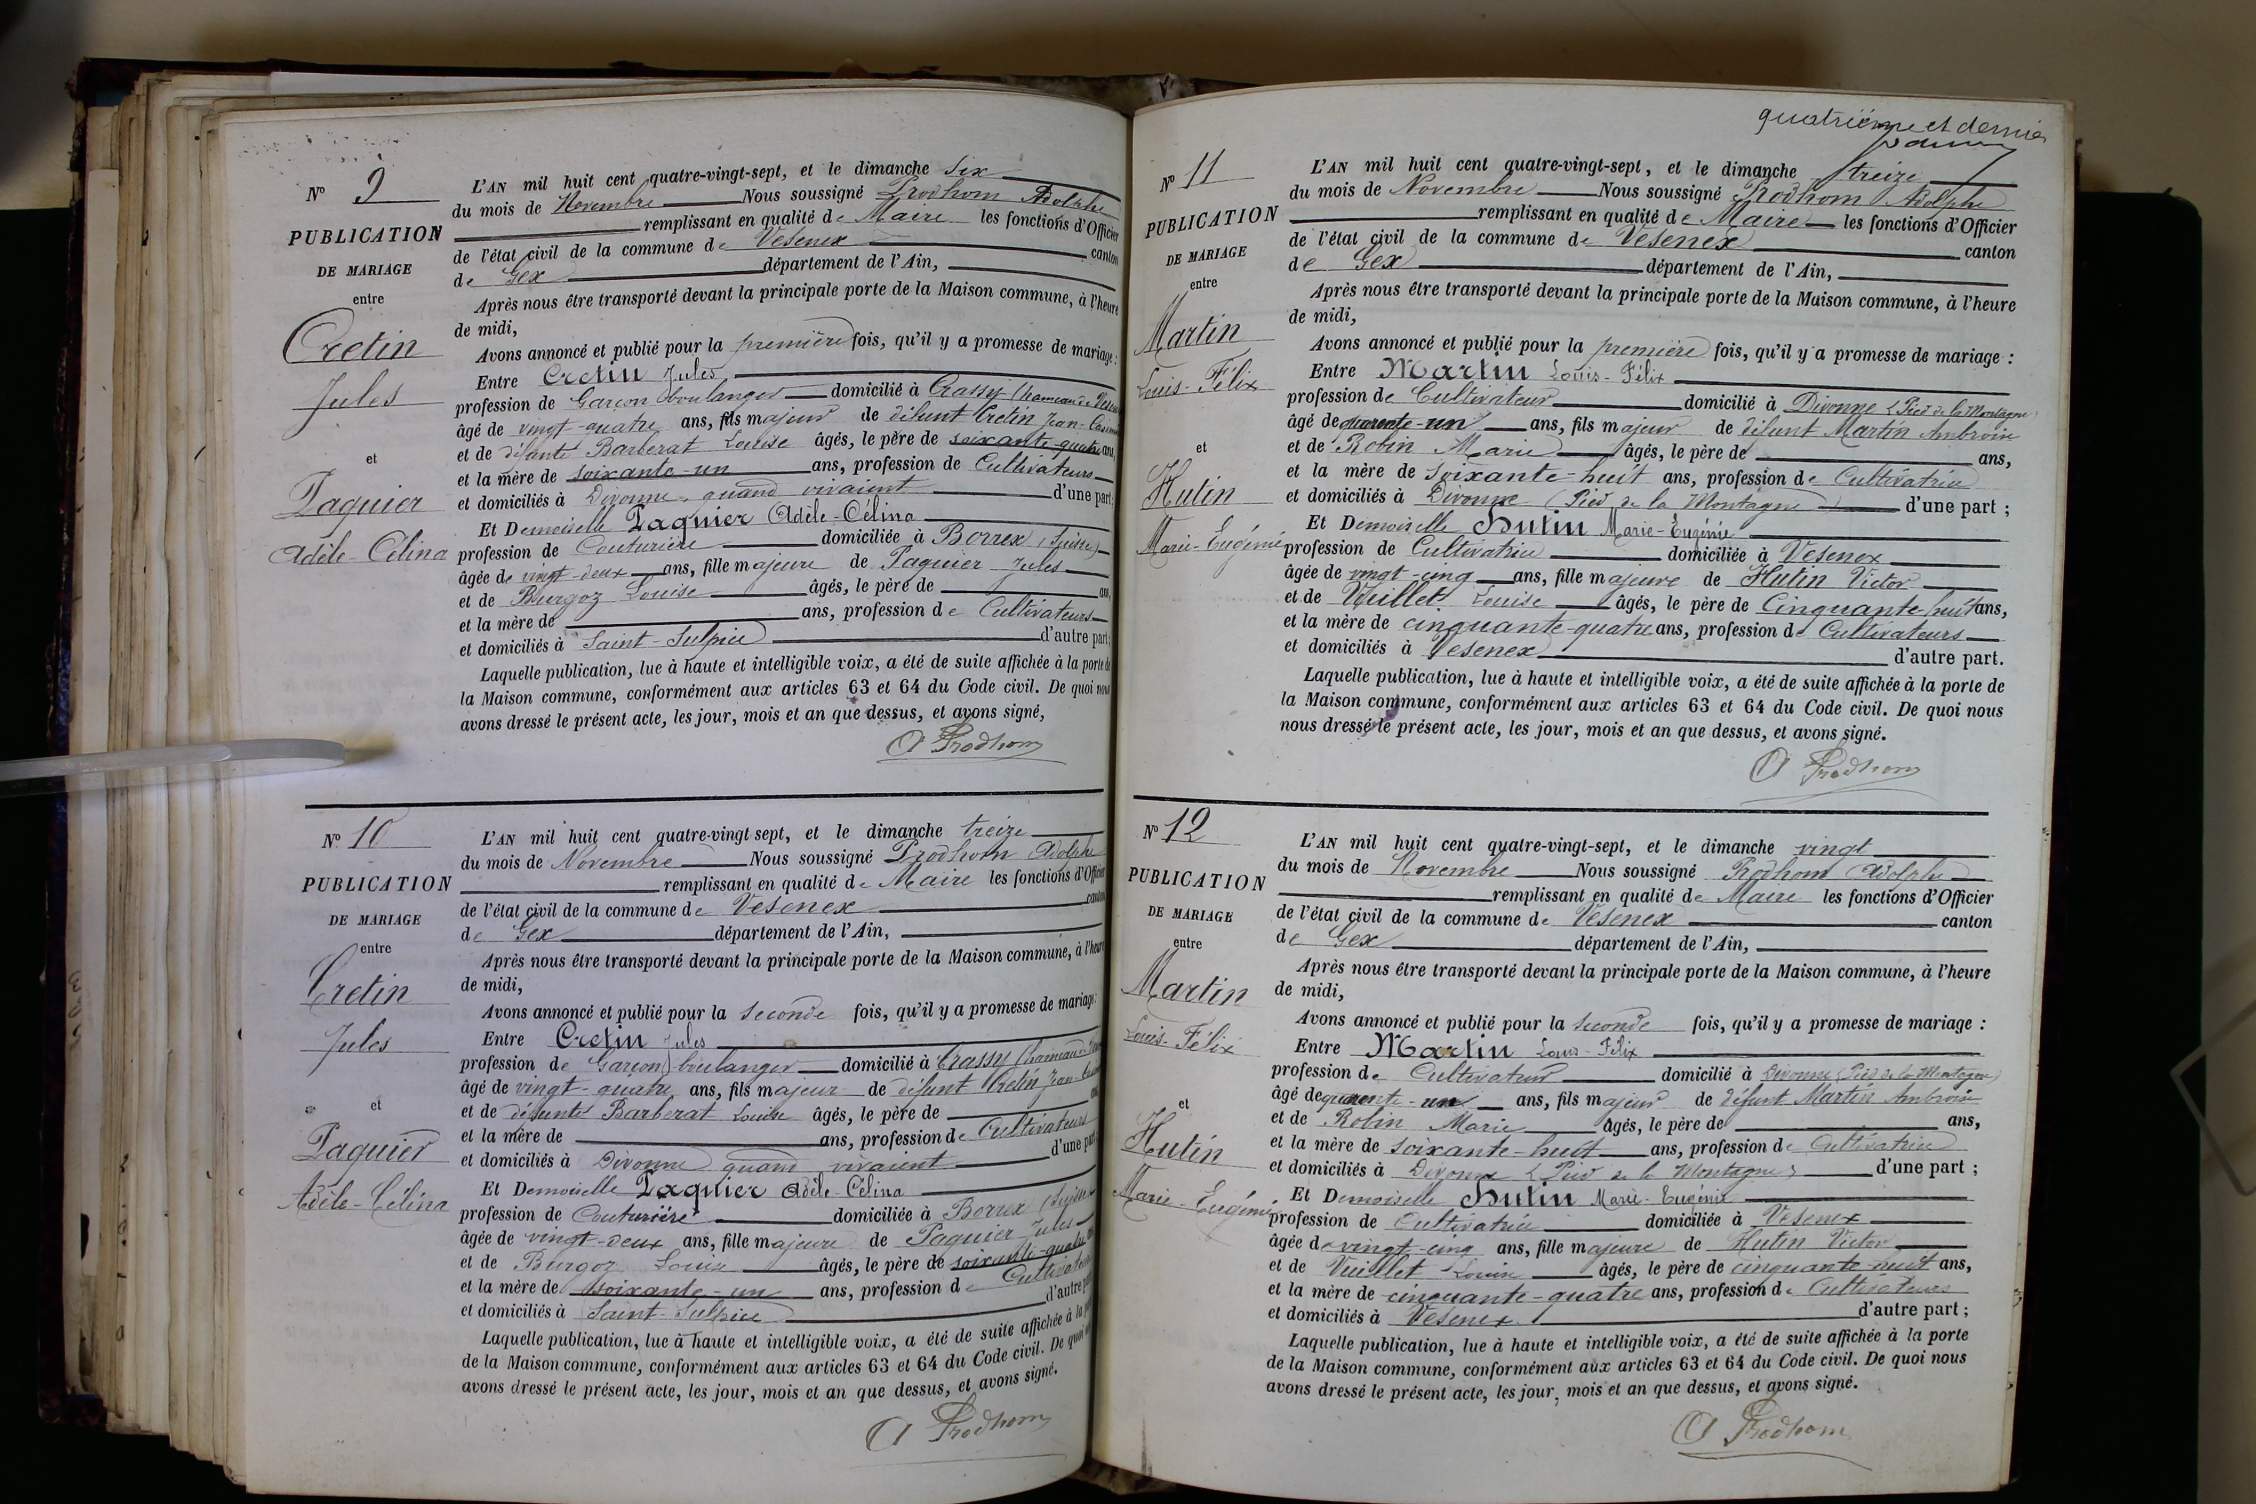 N° 9
PUBLICATION
DE MARIAGE
entre
Cretin
Jules
et
Paquier
Adèle-Célina
L'AN mil huit cent quatre-vingt-sept, et le dimanche Six
du mois de Novembre Nous soussigné Prodhom Adolphe
remplissant en qualité de Maire les fonctions d'Officier
de l'état civil de la commune de Vesenex canton
de Gex département de l'Ain,
Après nous être transporté devant la principale porte de la Maison commune, à l'heure
de midi,
Avons annoncé et publié pour la première fois, qu'il y a promesse de mariage :
Entre Cretin Jules
profession de Garçon boulanger domicilié à Crassy (hameau de
âgé de vingt-quatre ans, fils majeur de défunt Cretin Jean-
et de défunte Barberat Louise âgés, le père de soixante-quatre ans,
et la mère de soixante-un ans, profession de Cultivateurs
et domiciliés à Divonne, quand vivaient d'une part;
Et Demoiselle Paquier Adèle-Célina
profession de Couturière domiciliée à Borrex (Suisse)
âgée de vingt-deux ans, fille majeure de Paquier Jules
et de Burgoz Louise âgés, le père de ans,
et la mère de ans, profession de Cultivateurs
et domiciliés à Saint-Sulpice d'autre part;
Laquelle publication, lue à haute et intelligible voix, a été de suite affichée à la porte de
la Maison commune, conformément aux articles 63 et 64 du Code civil. De quoi nous
avons dressé le présent acte, les jour, mois et an que dessus, et avons signé,
A Prodhom
N° 10
PUBLICATION
DE MARIAGE
entre
Cretin
Jules
et
Paquier
Adèle-Célina
L'AN mil huit cent quatre-vingt sept, et le dimanche treize
du mois de Novembre Nous soussigné Prodhom Adolphe
remplissant en qualité de Maire les fonctions d'Officier
de l'état civil de la commune de Vesenex canton
de Gex département de l'Ain,
Après nous être transporté devant la principale porte de la Maison commune, à l'heure
de midi,
Avons annoncé et publié pour la seconde fois, qu'il y a promesse de mariage:
Entre Cretin Jules
profession de Garçon boulanger domicilié à Crassy (hameau de
âgé de vingt-quatre ans, fils majeur de défunt Cretin Jean-
et de défunte Barberat Louise âgés, le père de ans,
et la mère de ans, profession de Cultivateurs
et domiciliés à Divonne quand vivaient d'une part
Et Demoiselle Paquier Adèle-Célina
profession de Couturière domiciliée à Borrex (Suisse
âgée de vingt-deux ans, fille majeure de Paquier Jules
et de Burgoz Louise âgés, le père de soixante-quatre ans
et la mère de soixante-un ans, profession de Cultivateurs
et domiciliés à Saint-Sulpice d'autre part
Laquelle publication, lue à haute et intelligible voix, a été de suite affichée à la porte
de la Maison commune, conformément aux articles 63 et 64 du Code civil. De quoi
avons dressé le présent acte, les jour, mois et an que dessus, et avons signé.
A Prodhom
quatrième et dernier
N° 11
PUBLICATION
DE MARIAGE
entre
Martin
Louis-Félix
et
Hutin
Marie-Eugénie
L'AN mil huit cent quatre-vingt-sept, et le dimanche treize
du mois de Novembre Nous soussigné Prodhom Adolphe
remplissant en qualité de Maire les fonctions d'Officier
de l'état civil de la commune de Vesenex canton
de Gex département de l'Ain,
Après nous être transporté devant la principale porte de la Maison commune, à l'heure
de midi,
Avons annoncé et publié pour la première fois, qu'il y a promesse de mariage :
Entre Martin Louis-Félix
profession de Cultivateur domicilié à Divonne (Pied de la Montagne)
âgé de quarente-un ans, fils majeur de défunt Martin Ambroise
et de Robin Marie âgés, le père de ans,
et la mère de soixante-huit ans, profession de Cultivatrice
et domiciliés à Divonne (Pied de la Montagne) d'une part ;
Et Demoiselle Hutin Marie-Eugénie
profession de Cultivatrice domiciliée à Vesenex
âgée de vingt-cinq ans, fille majeure de Hutin Victor
et de Vuillet Louise âgés, le père de Cinquante-huit ans,
et la mère de cinquante-quatre ans, profession de Cultivateurs
et domiciliés à Vesenex d'autre part.
Laquelle publication, lue à haute et intelligible voix, a été de suite affichée à la porte de
la Maison commune, conformément aux articles 63 et 64 du Code civil. De quoi nous
nous dressé le présent acte, les jour, mois et an que dessus, et avons signé.
A Prodhom
N° 12
PUBLICATION
DE MARIAGE
entre
Martin
Louis-Félix
et
Hutin
Marie-Eugénie
L'AN mil huit cent quatre-vingt-sept, et le dimanche vingt
du mois de Novembre Nous soussigné Prodhom Adolphe
remplissant en qualité de Maire les fonctions d'Officier
de l'état civil de la commune de Vesenex canton
de Gex département de l'Ain,
Après nous être transporté devant la principale porte de la Maison commune, à l'heure
de midi,
Avons annoncé et publié pour la seconde fois, qu'il y a promesse de mariage :
Entre Martin Louis-Félix
profession de Cultivateur domicilié à Divonne (Pied de la Montagne)
âgé de quarente-un ans, fils majeur de défunt Martin Ambroise
et de Robin Marie âgés, le père de ans,
et la mère de soixante-huit ans, profession de Cultivatrice
et domiciliés à Divonne (Pied de la Montagne) d'une part ;
Et Demoiselle Hutin Marie-Eugénie
profession de Cultivatrice domiciliée à Vesenex
âgée de vingt-cinq ans, fille majeure de Hutin Victor
et de Vuillet Louise âgés, le père de cinquante-huit ans,
et la mère de cinquante-quatre ans, profession de Cultivateurs
et domiciliés à Vesenex d'autre part ;
Laquelle publication, lue à haute et intelligible voix, a été de suite affichée à la porte
de la Maison commune, conformément aux articles 63 et 64 du Code civil. De quoi nous
avons dressé le présent acte, les jour, mois et an que dessus, et avons signé.
A Prodhom